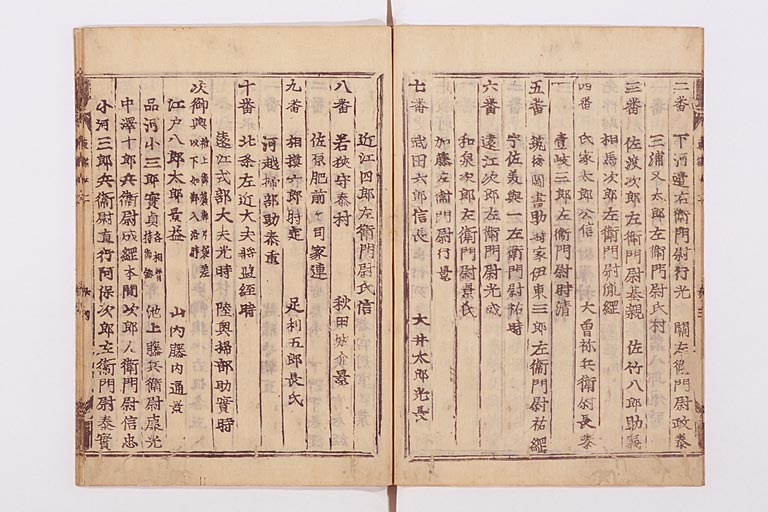 二番 下河邊右衛門尉行光 關左衛門尉政泰
三浦又太郎左衛門尉氏村
三番 佐渡次郎左衛門尉基親 佐竹八郎助義
相馬次郎左衛門尉胤經
四番 氏家太郎公信 大曽祢兵衛尉長泰
壹岐三郎左衛門尉時清
五番 筑後圖書助時家伊東三郎左衛門尉祐經
宇佐美與一左衛門尉祐時
六番 遠江次郎左衛門尉光盛
和泉次郎左衛門尉景氏
加藤左衛門尉行景
七番 武田六郎信長 大井太郎光長
近江四郎左衛門尉氏信
八番 若狹守泰村 秋田城介景
佐原肥前々司家連
九番 相摸六郎時定 足利五郎長氏
河越掃部助泰重
十番 北条左近大夫將監經時
遠江式部大夫光時 陸奥掃部助實時
次御輿
江戸八郎太郎景益 山内藤内通景
品河小三郎實貞 池上藤兵衛尉康光
中澤十郎兵衛尉成經本間次郎左衛門尉信忠
小河三郎兵衛尉直行阿保次郎左衛門尉泰實